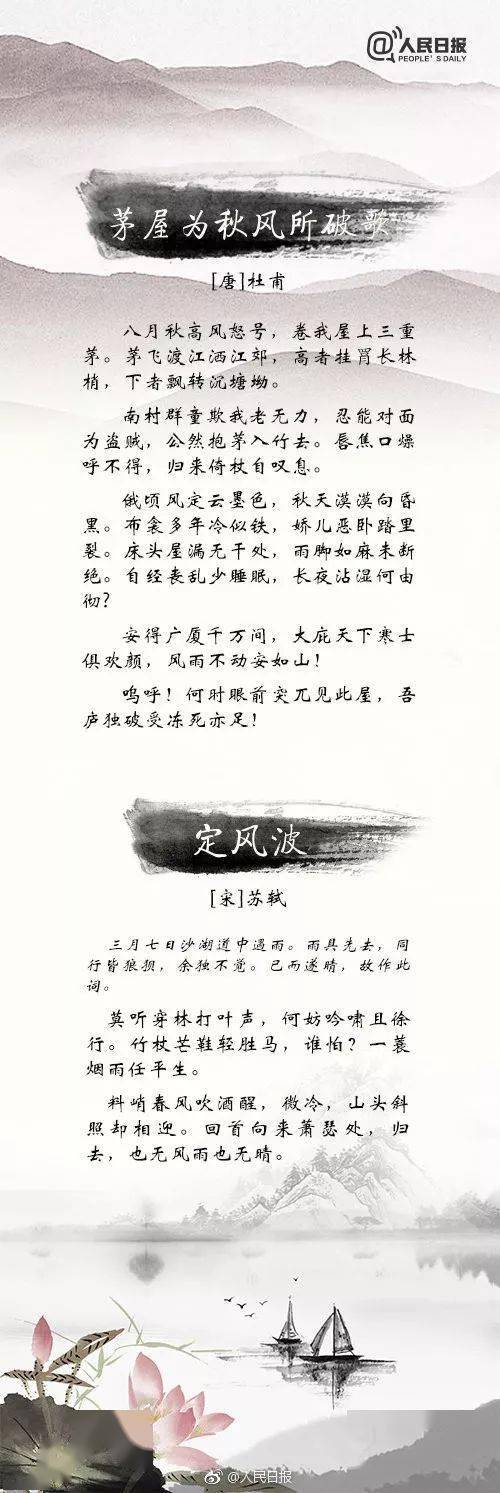 @人民日报
PEOPLE'S DAILY
茅屋为秋风所破歌
[唐]杜甫
八月秋高风怒号，卷我屋上三重
茅。茅飞渡江洒江郊，高者挂罥长林
梢，下者飘转沉塘坳。
南村群童欺我老无力，忍能对面
为盗贼，公然抱茅入竹去。唇焦口燥
呼不得，归来倚杖自叹息。
俄顷风定云墨色，秋天漠漠向昏
黑。布衾多年冷似铁，娇儿恶卧踏里
裂。床头屋漏无干处，雨脚如麻未断
绝。自经丧乱少睡眠，长夜沾湿何由
彻？
安得广厦千万间，大庇天下寒士
俱欢颜，风雨不动安如山！
呜呼！何时眼前突兀见此屋，吾
庐独破受冻死亦足！
定风波
[宋]苏轼
三月七日沙湖道中遇雨。雨具先去，同
行皆狼狈，余独不觉。已而遂晴，故作此
词。
莫听穿林打叶声，何妨吟啸且徐
行。竹杖芒鞋轻胜马，谁怕？一蓑
烟雨任平生。
料峭春风吹酒醒，微冷，山头斜
照却相迎。回首向来萧瑟处，归
去，也无风雨也无晴。
@人民日报